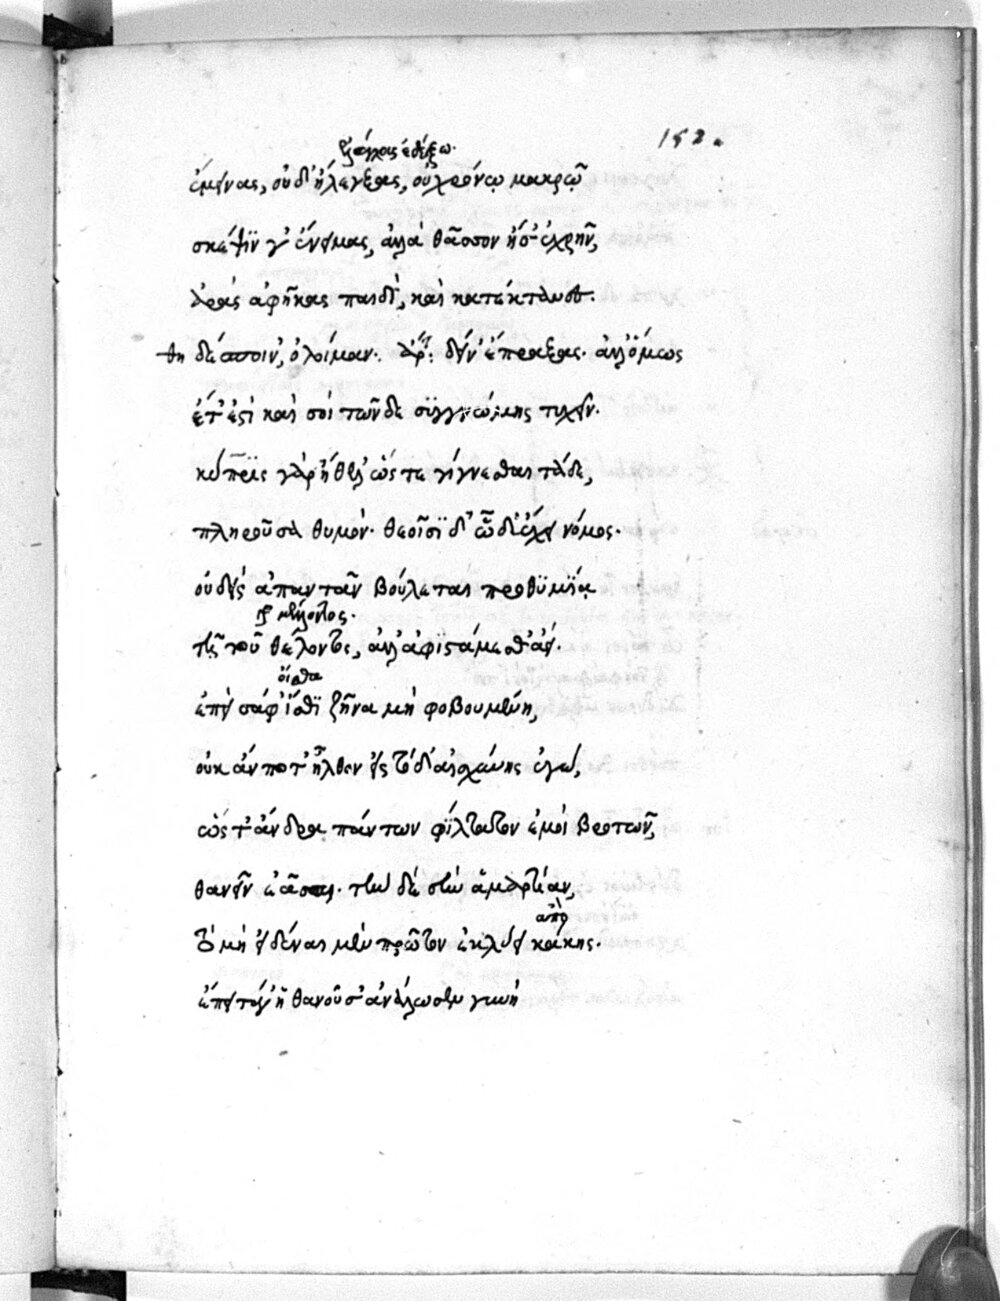 152.
ἔμεινας, οὐδ' ἤλεγξας, οὐ χρόνῳ μακρῷ
σκέψιν γ' ἔνειμας, ἀλλὰ θᾶσσον ἤ σ' ἐχρῆν,
ἀρὰς ἀφῆκας παιδὶ, καὶ κατέκτανες.
θη δέσποιν', ὀλοίμαν. ἀρ: δείν' ἔπραξας. ἀλλ' ὅμως
ἔτ' ἐστὶ καὶ σοὶ τῶνδε συγγνώμης τυχεῖν.
κύπρις γὰρ ἤθελ' ὥστε γίγνεσθαι τάδε,
πληροῦσα θυμόν. θεοῖσι δ' ὧδ' ἔχει νόμος.
οὐδεὶς ἀπαντᾶν βούλεται προθυμίᾳ
τῇ τοῦ θέλοντος, ἀλλ' ἀφιστάμεσθ' ἀεί.
οἶσθα
ἐπεὶ σάφ' ἴσθι ζῆνα μὴ φοβουμένη,
οὐκ ἄν ποτ' ἦλθον εἰς τόδ' αἰσχύνης ἐγώ,
ὥστ' ἄνδρα πάντων φίλτατον ἐμοὶ βροτῶν,
θανεῖν ἐᾶσαι. τὴν δὲ σὴν ἁμαρτίαν,
ἀπὸ
τὸ μὴ εἰδέναι μὲν πρῶτον ἐκλύει κάκης.
ἔπειτα γ' ἡ θανοῦσ' ἀνήλωσεν γυνὴ